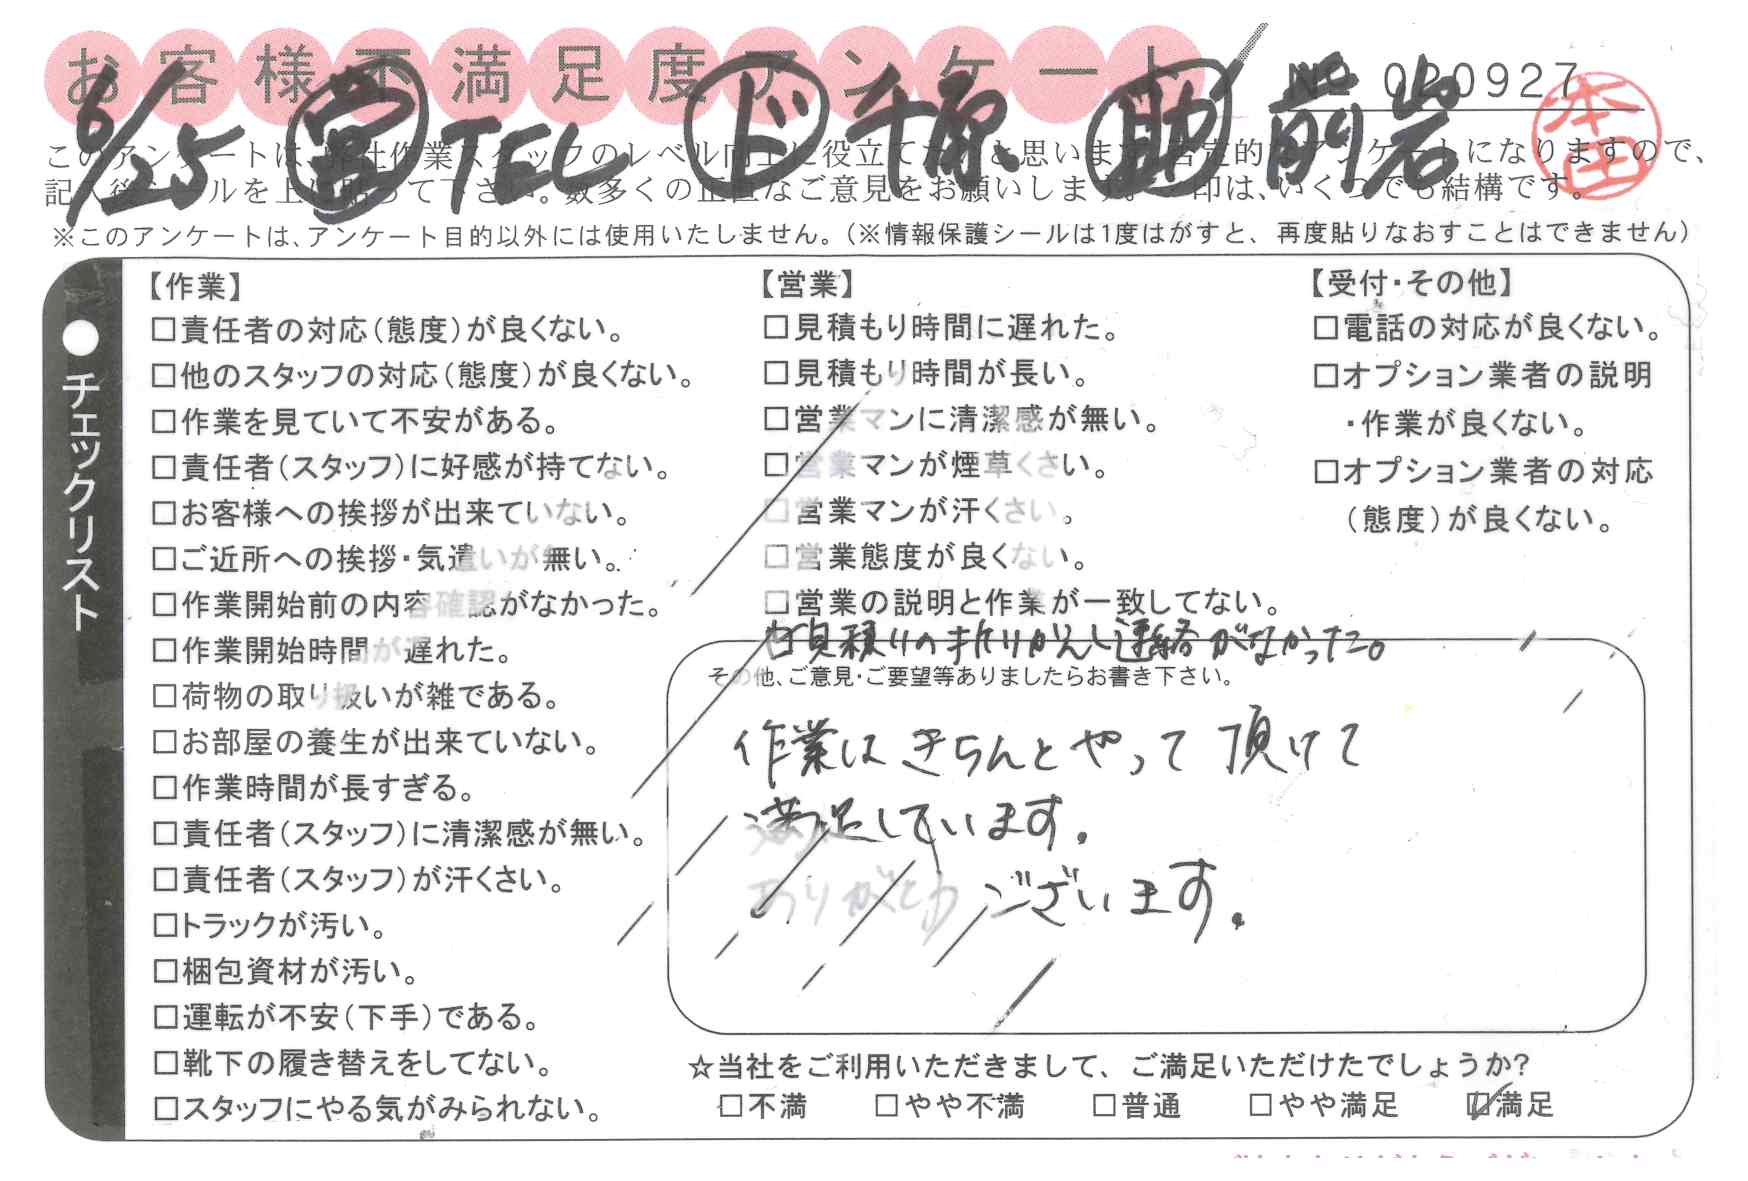 お客様不満足度アンケート
NO 020927
6/25 営 TEL ド 千原 助 前岩
本田
このアンケートは、弊社作業スタッフのレベル向上に役立てたいと思います。否定的なアンケートになりますので、
記入後シールを上に貼って下さい。数多くの正直なご意見をお願いします。レ印は、いくつでも結構です。
※このアンケートは、アンケート目的以外には使用いたしません。(※情報保護シールは1度はがすと、再度貼りなおすことはできません)
●チェックリスト
【作業】
□責任者の対応(態度)が良くない。
□他のスタッフの対応(態度)が良くない。
□作業を見ていて不安がある。
□責任者(スタッフ)に好感が持てない。
□お客様への挨拶が出来ていない。
□ご近所への挨拶・気遣いが無い。
□作業開始前の内容確認がなかった。
□作業開始時間が遅れた。
□荷物の取り扱いが雑である。
□お部屋の養生が出来ていない。
□作業時間が長すぎる。
□責任者(スタッフ)に清潔感が無い。
□責任者(スタッフ)が汗くさい。
□トラックが汚い。
□梱包資材が汚い。
□運転が不安(下手)である。
□靴下の履き替えをしてない。
□スタッフにやる気がみられない。
【営業】
□見積もり時間に遅れた。
□見積もり時間が長い。
□営業マンに清潔感が無い。
□営業マンが煙草くさい。
□営業マンが汗くさい。
□営業態度が良くない。
□営業の説明と作業が一致してない。
□見積りの折りかえし連絡がなかった。
【受付・その他】
□電話の対応が良くない。
□オプション業者の説明
・作業が良くない。
□オプション業者の対応
(態度)が良くない。
その他、ご意見・ご要望等ありましたらお書き下さい。
作業はきちんとやって頂けて
満足しています。
ありがとうございます。
☆当社をご利用いただきまして、ご満足いただけたでしょうか?
□不満 □やや不満 □普通 □やや満足 ☑満足